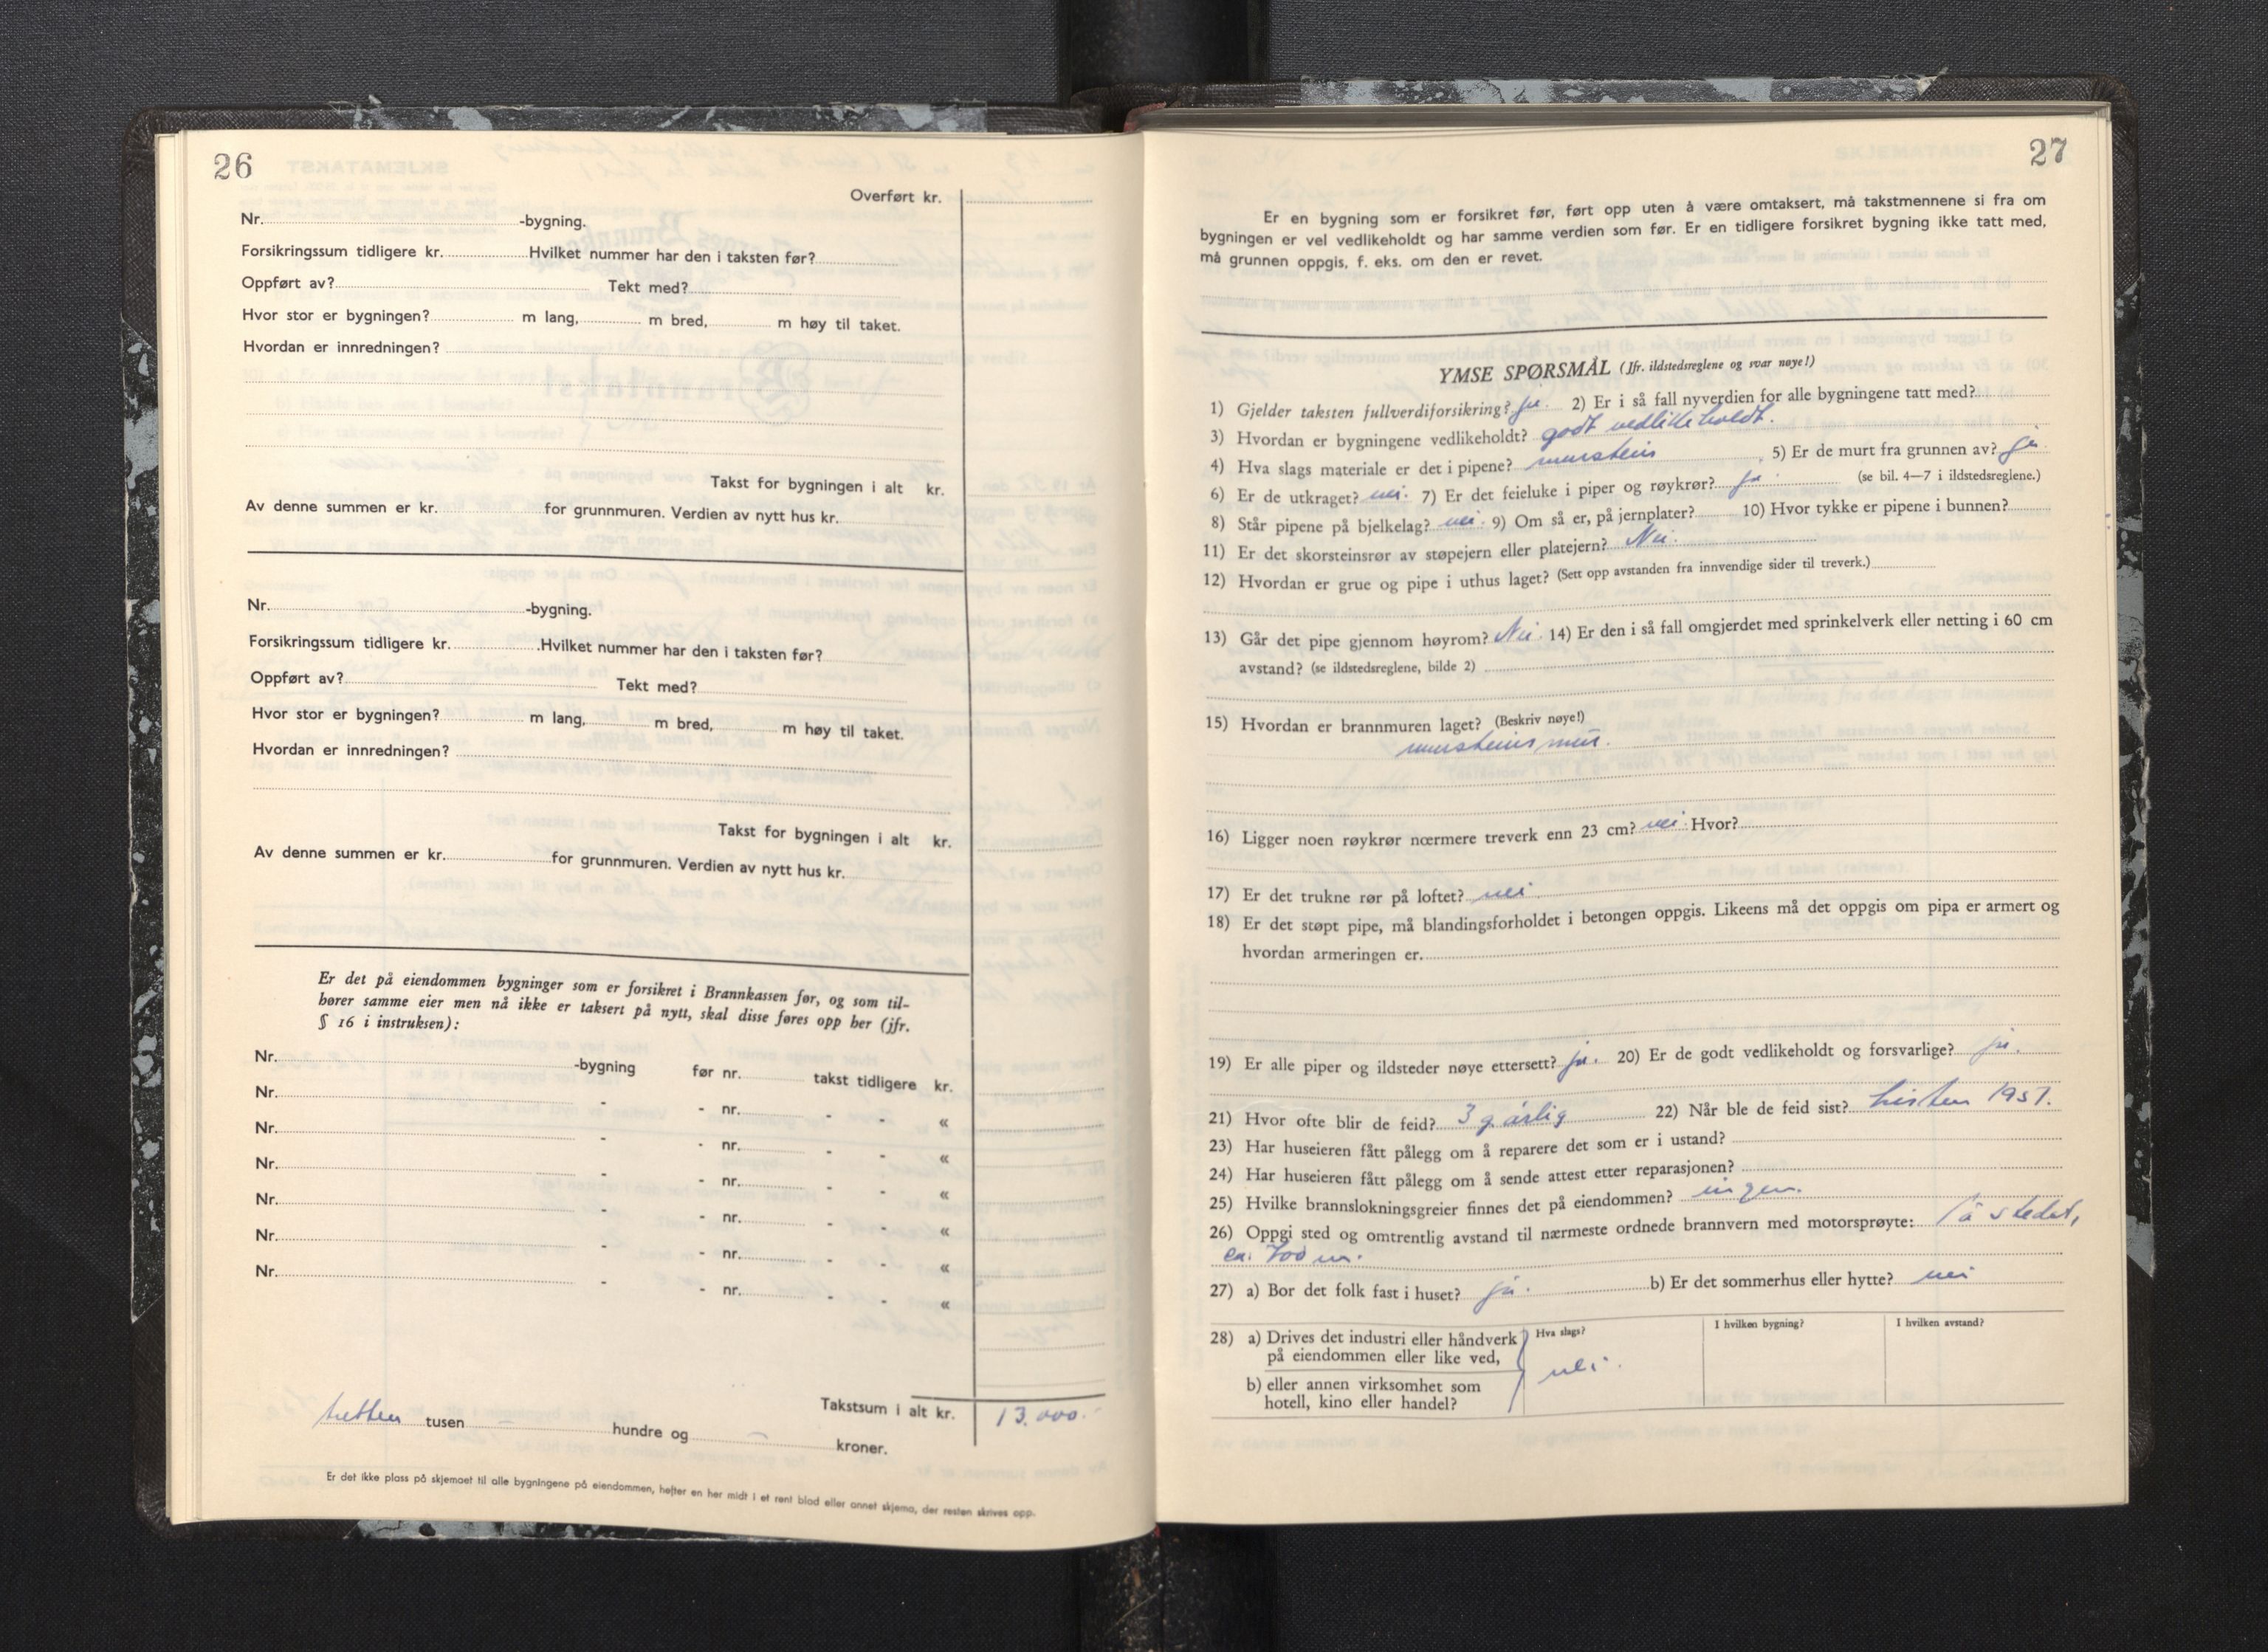 26
Overført kr.
Nr. -bygning.
Forsikringssum tidligere kr. Hvilket nummer har den i taksten før?
Oppført av? Tekt med?
Hvor stor er bygningen? m lang, m bred, m høy til taket.
Hvordan er innredningen?
Takst for bygningen i alt kr.
Av denne summen er kr. for grunnmuren. Verdien av nytt hus kr.
Nr. -bygning.
Forsikringssum tidligere kr. Hvilket nummer har den i taksten før?
Oppført av? Tekt med?
Hvor stor er bygningen? m lang, m bred, m høy til taket.
Hvordan er innredningen?
Takst for bygningen i alt kr.
Av denne summen er kr. for grunnmuren. Verdien av nytt hus kr.
Er det på eiendommen bygninger som er forsikret i Brannkassen før, og som til-
hører samme eier men nå ikke er taksert på nytt, skal disse føres opp her (jfr.
§ 16 i instruksen):
Nr. -bygning før nr. takst tidligere kr.
Nr. - - nr. - - «
Nr. - - nr. - - «
Nr. - - nr. - - «
Nr. - - nr. - - «
Nr. - - nr. - - «
Nr. - - nr. - - «
Takstsum i alt kr. 13.000.-
tretten tusen — hundre og — kroner.
Er det ikke plass på skjemaet til alle bygningene på eiendommen, hefter en her midt i et rent blad eller annet skjema, der resten skrives opp.
27
Er en bygning som er forsikret før, ført opp uten å være omtaksert, må takstmennene si fra om
bygningen er vel vedlikeholdt og har samme verdien som før. Er en tidligere forsikret bygning ikke tatt med,
må grunnen oppgis, f. eks. om den er revet.
YMSE SPØRSMÅL (Jfr. ildstedsreglene og svar nøye!)
1) Gjelder taksten fullverdiforsikring? ja. 2) Er i så fall nyverdien for alle bygningene tatt med?
3) Hvordan er bygningene vedlikeholdt? godt vedlikeholdt.
4) Hva slags materiale er det i pipene? murstein 5) Er de murt fra grunnen av? ja
6) Er de utkraget? nei. 7) Er det feieluke i piper og røykrør? ja (se bil. 4—7 i ildstedsreglene.)
8) Står pipene på bjelkelag? nei. 9) Om så er, på jernplater? 10) Hvor tykke er pipene i bunnen?
11) Er det skorsteinsrør av støpejern eller platejern? Nei.
12) Hvordan er grue og pipe i uthus laget? (Sett opp avstanden fra innvendige sider til treverk.)
13) Går det pipe gjennom høyrom? Nei. 14) Er den i så fall omgjerdet med sprinkelverk eller netting i 60 cm
avstand? (se ildstedsreglene, bilde 2)
15) Hvordan er brannmuren laget? (Beskriv nøye!)
mursteins mur.
16) Ligger noen røykrør nærmere treverk enn 23 cm? nei. Hvor?
17) Er det trukne rør på loftet? nei
18) Er det støpt pipe, må blandingsforholdet i betongen oppgis. Likeens må det oppgis om pipa er armert og
hvordan armeringen er.
19) Er alle piper og ildsteder nøye ettersett? ja. 20) Er de godt vedlikeholdt og forsvarlige? ja.
21) Hvor ofte blir de feid? 3 g årlig 22) Når ble de feid sist? høsten 1951.
23) Har huseieren fått pålegg om å reparere det som er i ustand?
24) Har huseieren fått pålegg om å sende attest etter reparasjonen?
25) Hvilke brannslokningsgreier finnes det på eiendommen? ingen.
26) Oppgi sted og omtrentlig avstand til nærmeste ordnede brannvern med motorsprøyte: På stedet,
ca. 700 m.
27) a) Bor det folk fast i huset? ja. b) Er det sommerhus eller hytte? nei
28) a) Drives det industri eller håndverk Hva slags? I hvilken bygning? I hvilken avstand?
på eiendommen eller like ved,
nei.
b) eller annen virksomhet som
hotell, kino eller handel?